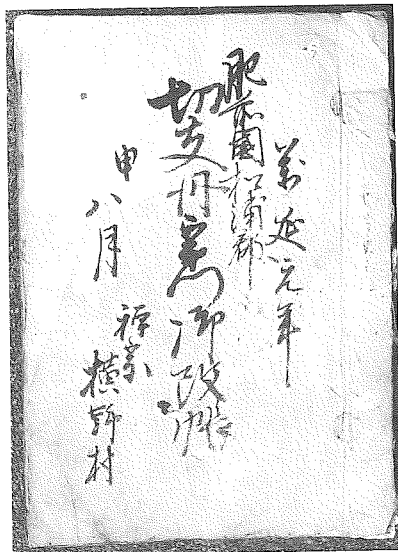 萬延元年
肥前國松浦郡
切支丹宗門御改帳
申八月
禅宗
横野村